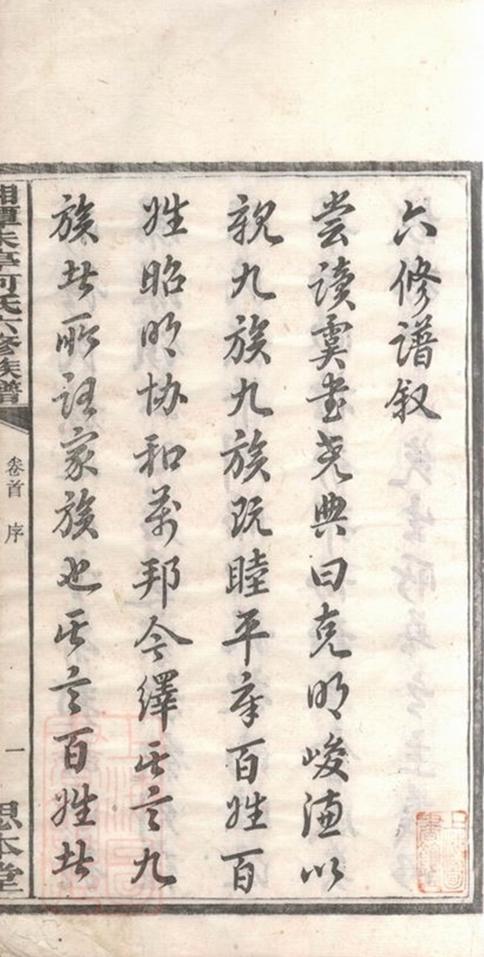 六修譜叙
嘗讀虞書堯典曰克明峻德以
親九族九族既睦平章百姓百
姓昭明協和萬邦今繹其言九
族者所謂家族也其言百姓者
湘潭朱亭何氏六修族譜
卷首 序
一
思本堂